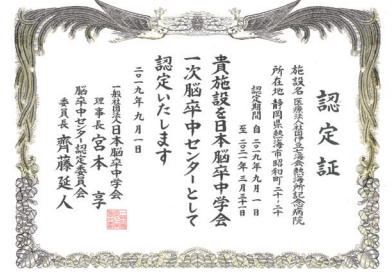 認定証
施設名 医療法人社団伊豆七海会熱海所記念病院
所在地 静岡県熱海市昭和町二十-二十
認定期間 自 二〇一九年九月一日
至 二〇二一年三月三十一日
貴施設を日本脳卒中学会
一次脳卒中センターとして
認定いたします
二〇一九年九月一日
一般社団法人日本脳卒中学会
理事長 宮本 享
脳卒中センター認定委員会
委員長 齊藤延人